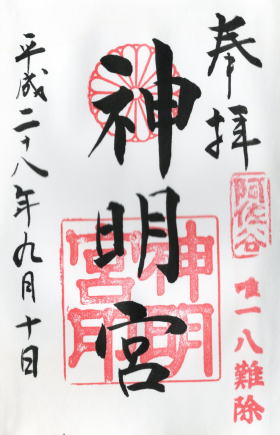 奉拝
阿佐谷
唯一八難除
神明宮
神明宮印
平成二十八年九月十日